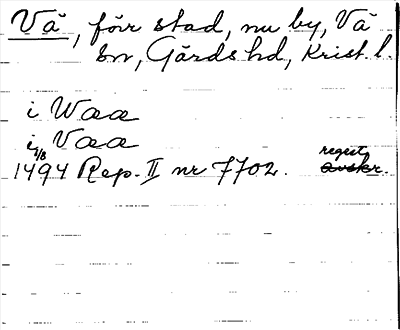 Vä, förr stad, nu by, Vä
sn, Gärds hd, Krist. l.
i Waa
i Vaa
1/8
1494 Rep. II nr 7702. regest.
avskr.